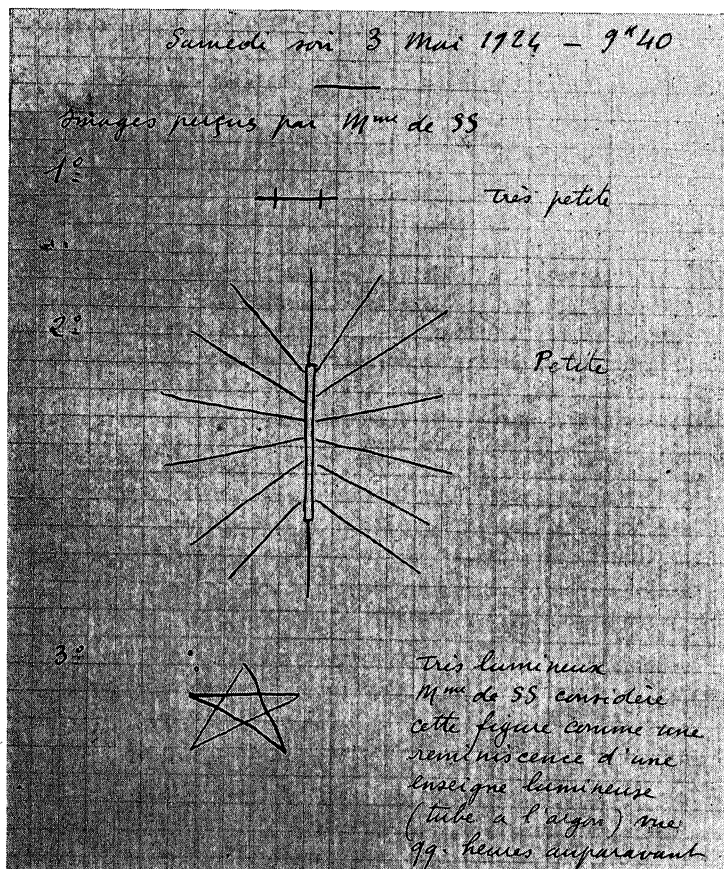 Samedi soir 3 Mai 1924 – 9h40
Images perçus par Mme de SS
1º
très petite
2º
Petite
3º
très lumineux
Mme de SS considère
cette figure comme une
reminiscence d'une
enseigne lumineuse
(tube a l'argon) vue
qq. heures auparavant